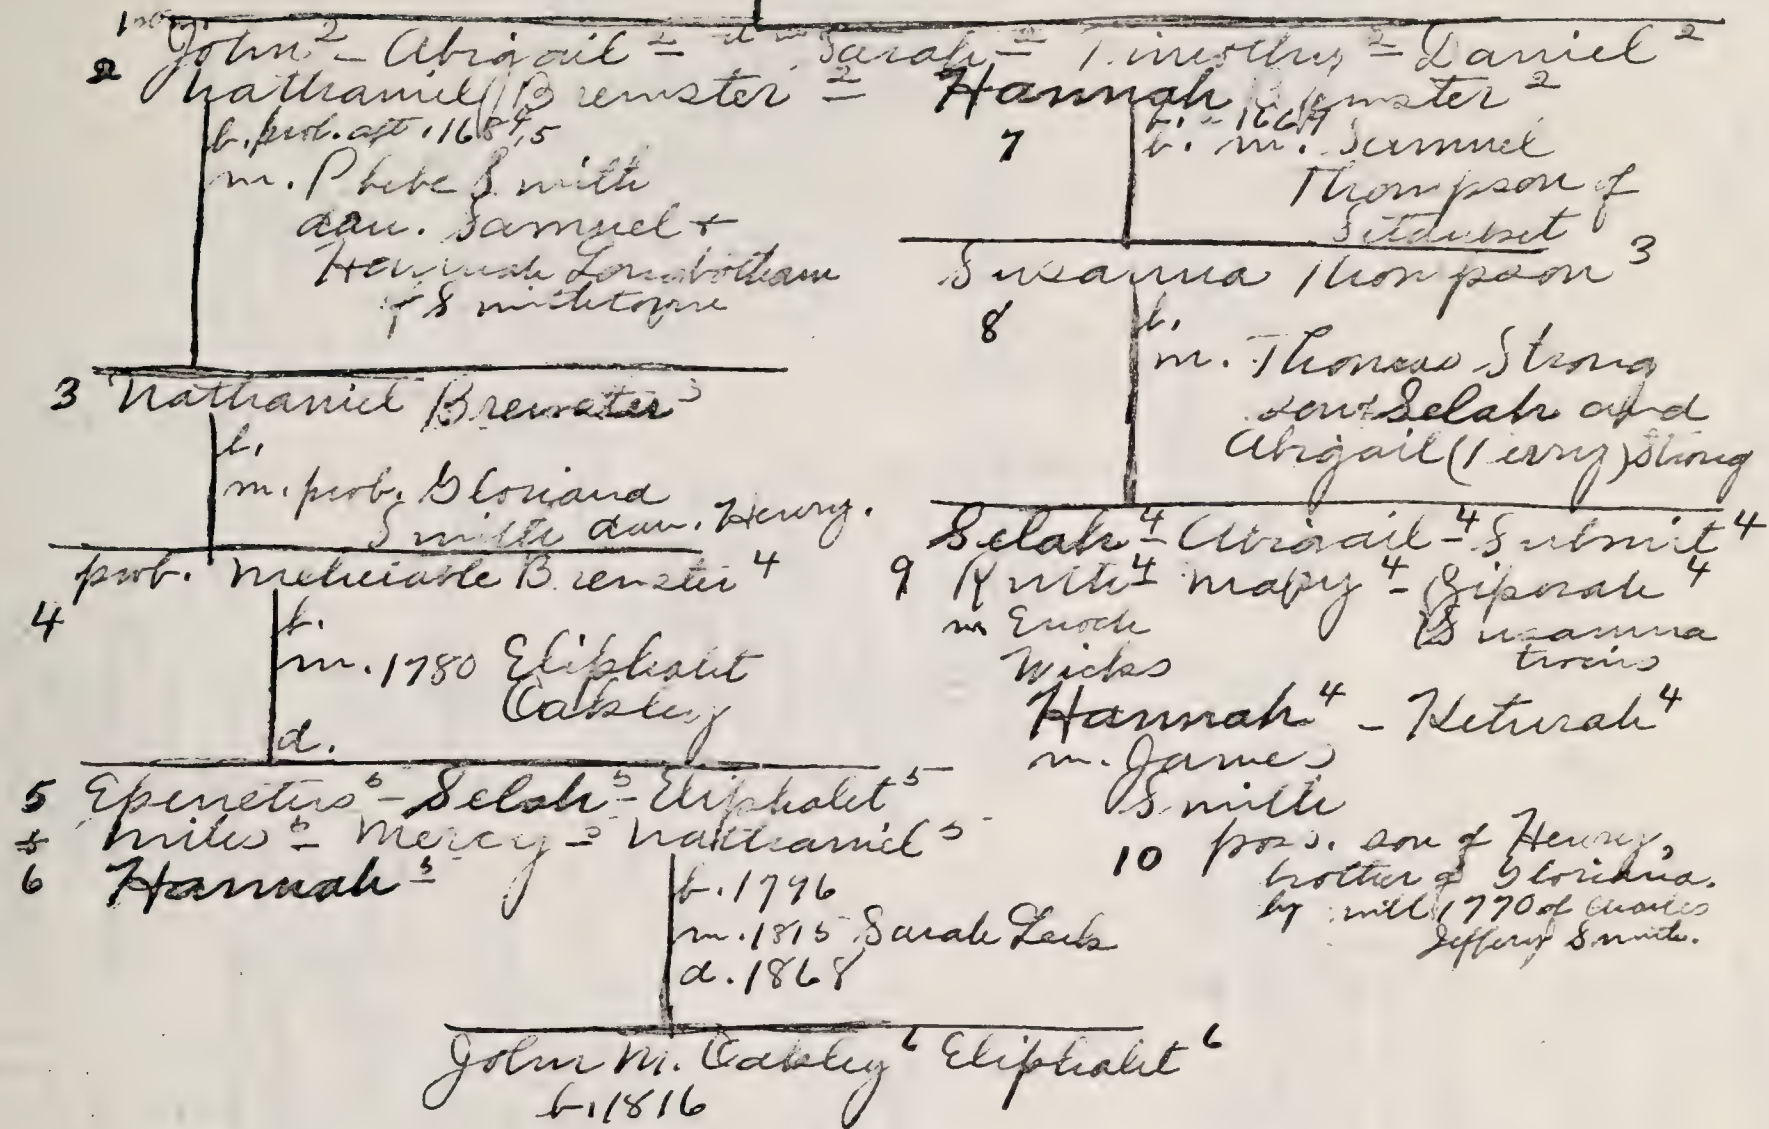 John² - Abigail² = Sarah = Timothy² = Daniel²
2 Nathaniel Brewster² = Hannah Brewster²
b. prob. aft. 1684,5
m. Phebe Smith
dau. Samuel +
Hannah Longbotham
of Smithtown
3 Nathaniel Brewster³
b.
m. prob. Gloriana
Smith dau. Henry.
prob. Mehitable Brewster⁴
4
b.
m. 1780 Eliphalet
Oakley
d.
5 Epenetus⁵ - Selah⁵ - Eliphalet⁵
Miles⁵ = Mercy = Nathaniel⁵
6 Hannah⁵
b. 1796
m. 1815 Sarah
d. 1868
John M. Oakley⁶ Eliphalet⁶
b. 1816
7
b. - 1669
b. m. Samuel
Thompson of
Setauket
Susanna Thompson³
8
b.
m. Thomas Strong
son of Selah and
Abigail (Terry) Strong
Selah⁴ - Abigail⁴ - Submit⁴
9 Ruth⁴ Mary⁴ - Ziporah⁴
m Enoch
Wicks
Susanna
twins
Hannah⁴ - Keturah⁴
m. James
Smith
10 poss. son of Henry,
brother of Gloriana.
by will 1770 of Charles
Jeffery Smith.